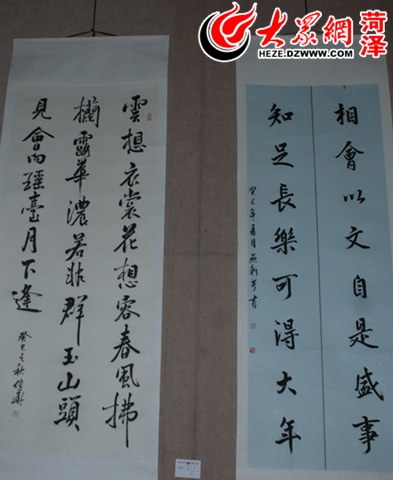 大众網
菏泽
HEZE.DZWWW.COM
相會以文自是盛事
知足長樂可得大年
癸巳年夏月
書
雲想衣裳花想容春風拂
檻露華濃若非群玉山頭
見會向瑶臺月下逢
癸巳之秋